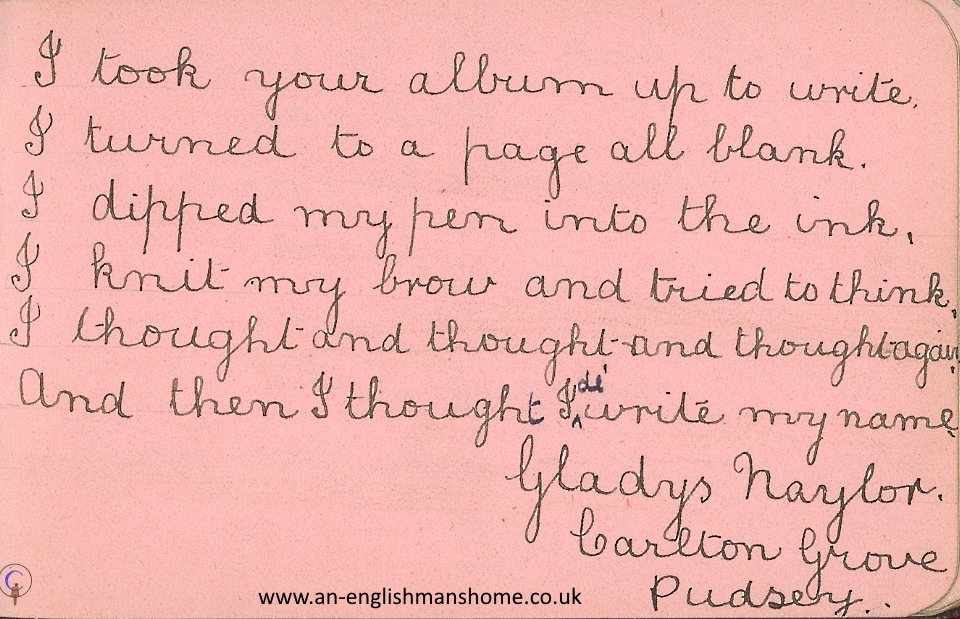 I took your album up to write.
I turned to a page all blank.
I dipped my pen into the ink,
I knit my brow and tried to think,
I thought and thought and thought again,
And then I thought I'd write my name
Gladys Naylor.
Carlton Grove
Pudsey..
www.an-englishmanshome.co.uk